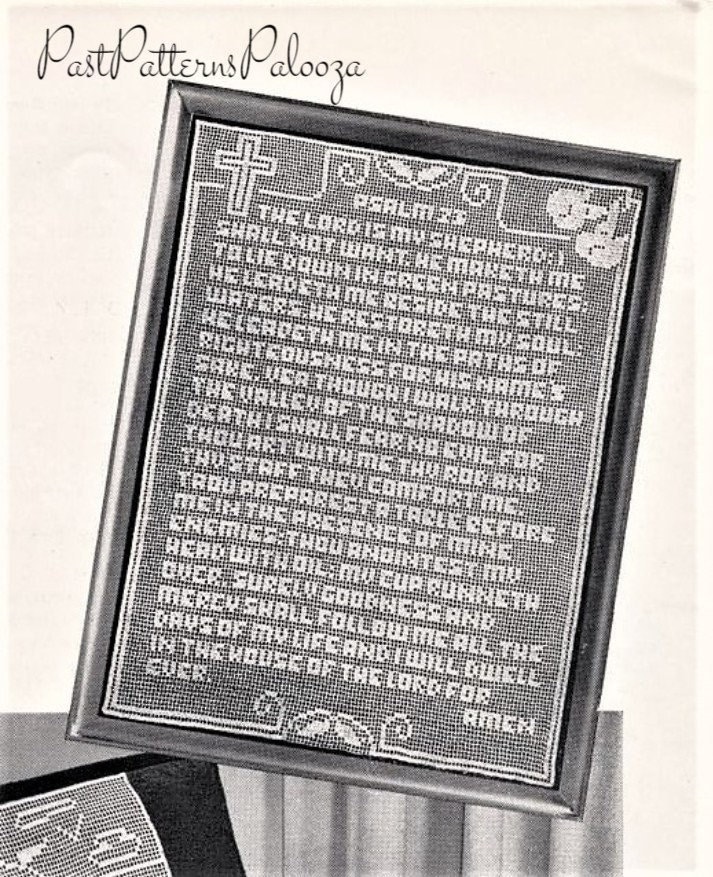 PastPatternsPalooza
PSALM 23
THE LORD IS MY SHEPHERD: I
SHALL NOT WANT. HE MAKETH ME
TO LIE DOWN IN GREEN PASTURES:
HE LEADETH ME BESIDE THE STILL
WATERS. HE RESTORETH MY SOUL:
HE LEADETH ME IN THE PATHS OF
RIGHTEOUSNESS FOR HIS NAME'S
SAKE. YEA THOUGH I WALK THROUGH
THE VALLEY OF THE SHADOW OF
DEATH I SHALL FEAR NO EVIL: FOR
THOU ART WITH ME THY ROD AND
THY STAFF THEY COMFORT ME.
THOU PREPAREST A TABLE BEFORE
ME IN THE PRESENCE OF MINE
ENEMIES: THOU ANOINTEST MY
HEAD WITH OIL: MY CUP RUNNETH
OVER. SURELY GOODNESS AND
MERCY SHALL FOLLOW ME ALL THE
DAYS OF MY LIFE AND I WILL DWELL
IN THE HOUSE OF THE LORD FOR
EVER.
AMEN